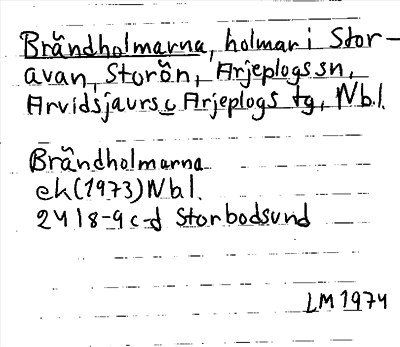 Brändholmarna, holmar i Stor-
avan, Storön, Arjeplogs sn,
Arvidsjaurs o Arjeplogs tg, Nbl.
Brändholmarna
ek (1973) Nbl.
24 I 8-9 c-d Storbodsund
LM 1974